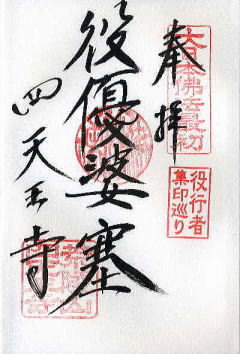 奉拝
大日本佛法最初
役行者
集印巡り
役優婆塞
四天王寺